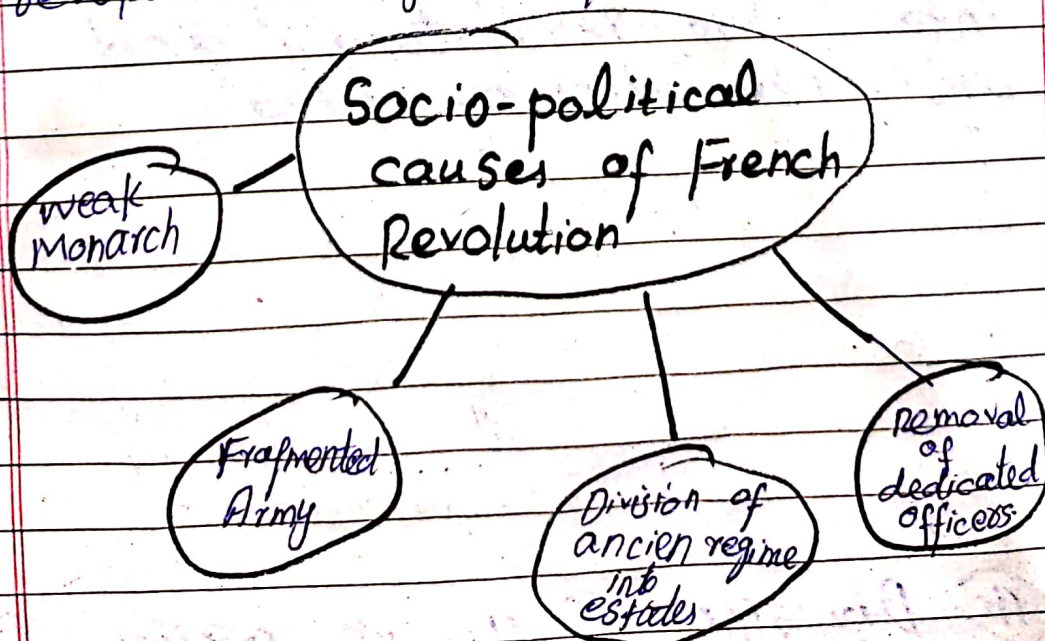 Socio-political
causes of French
Revolution
weak
Monarch
Fragmented
Army
Division of
ancien regime
into
estates
Removal
of
dedicated
officers.